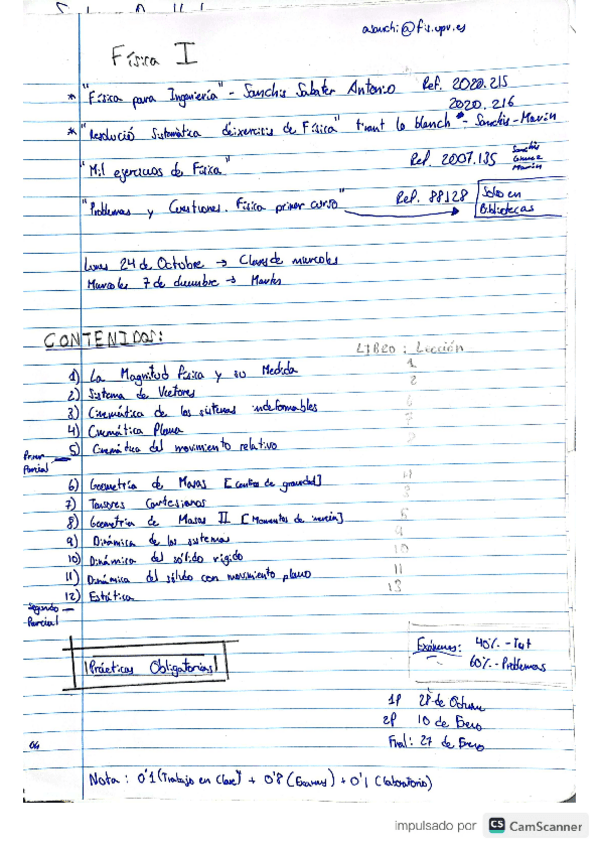 asanchi@fis.upv.es
Física I
* "Física para Ingeniería" - Sanchis Sabater Antonio Ref. 2020.215
2020.216
* "Resolució Sistemàtica d'exercicis de Física" tirant lo blanch - Sanchis-Marín
"Mil ejercicios de Física" Ref. 2007.135
"Problemas y Cuestiones. Física primer curso" → Ref. 88128 Solo en Bibliotecas
Lunes 24 de Octubre → Clases de miercoles
Miercoles 7 de diciembre → Martes
CONTENIDOS: LIBRO : Lección
1) La Magnitud Física y su Medida 1
2) Sistema de Vectores 2
3) Cinemática de los sistemas indeformables 6
4) Cinemática Plana 7
5) Cinemática del movimiento relativo
Primer Parcial
6) Geometría de Masas [Centros de gravedad]
7) Tensores Cartesianos 3
8) Geometría de Masas II [Momentos de inercia] 5
9) Dinámica de los sistemas 9
10) Dinámica del sólido rígido 10
11) Dinámica del sólido con movimiento plano 11
12) Estática 13
Segundo Parcial
Exámenes: 40% - Test
60% - Problemas
Prácticas Obligatorias
1P 28 de Octubre
2P 10 de Enero
Final: 27 de Enero
Nota: 0'1 (Trabajo en Clase) + 0'8 (Examenes) + 0'1 (laboratorio)
impulsado por CS CamScanner